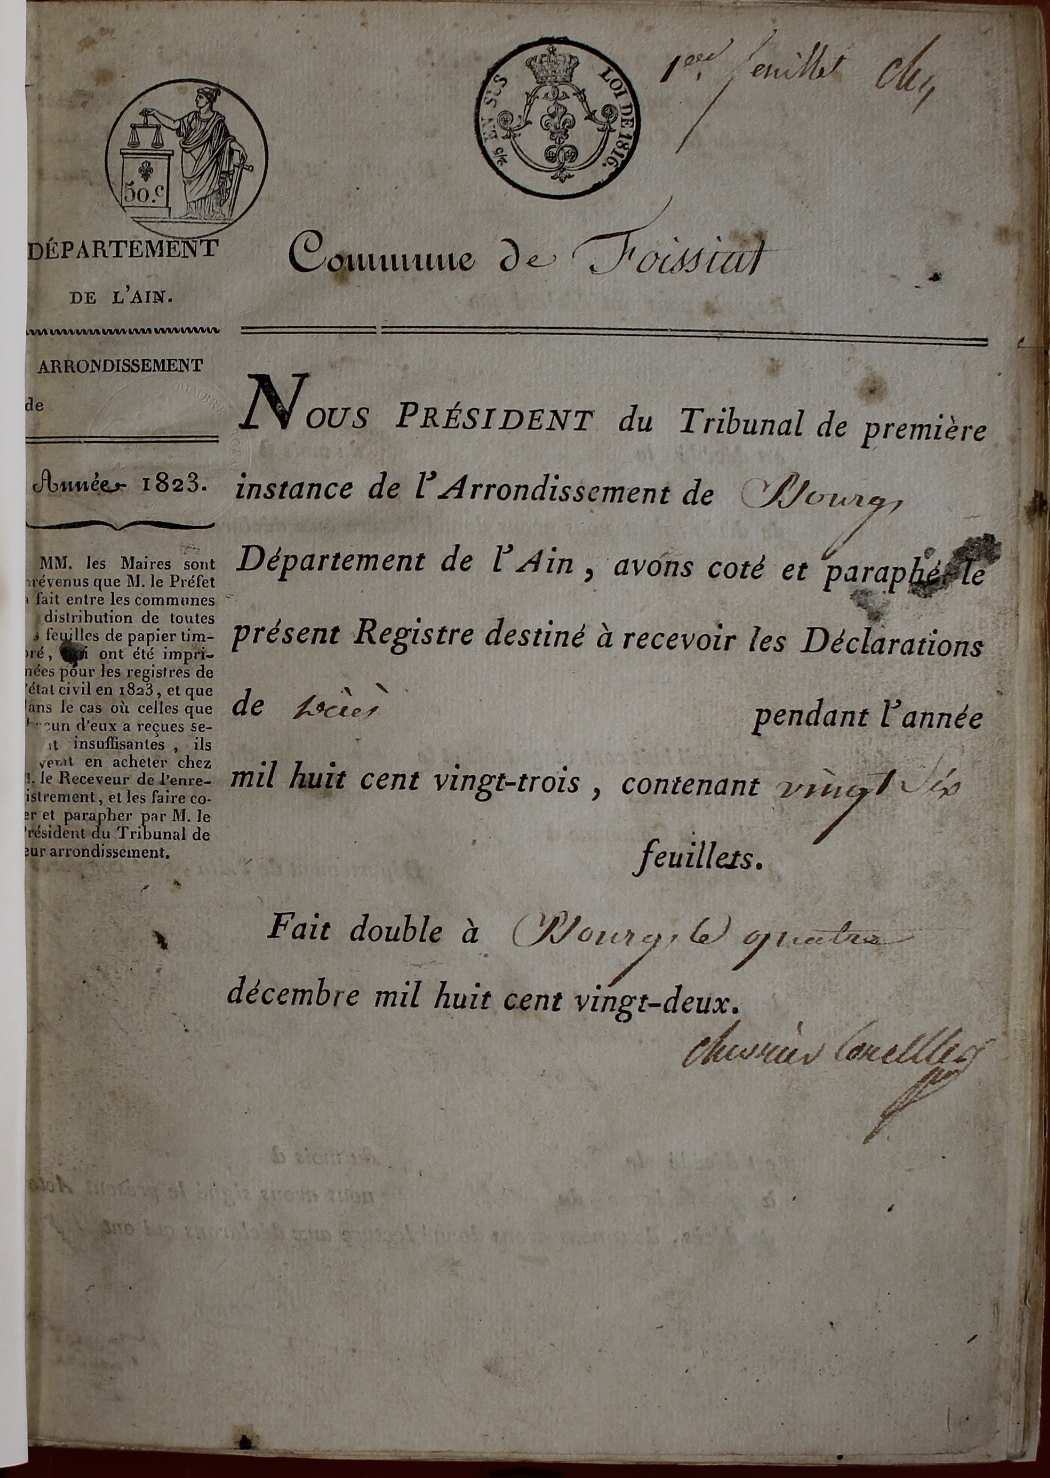 1er. feuillet
EN SUS
LOI DE 1816.
50.c
DÉPARTEMENT
DE L'AIN.
Commune de Foissiat
ARRONDISSEMENT
de
Année 1823.
MM. les Maires sont
prévenus que M. le Préfet
a fait entre les communes
distribution de toutes
feuilles de papier tim-
bré, qui ont été impri-
mées pour les registres de
l'état civil en 1823, et que
dans le cas où celles que
chacun d'eux a reçues se-
insuffisantes, ils
en acheter chez
M. le Receveur de l'enre-
gistrement, et les faire co-
ter et parapher par M. le
Président du Tribunal de
leur arrondissement.
NOUS PRÉSIDENT du Tribunal de première
instance de l'Arrondissement de Bourg,
Département de l'Ain, avons coté et paraphé le
présent Registre destiné à recevoir les Déclarations
de décès pendant l'année
mil huit cent vingt-trois, contenant vingt six
feuillets.
Fait double à Bourg, le quatre
décembre mil huit cent vingt-deux.